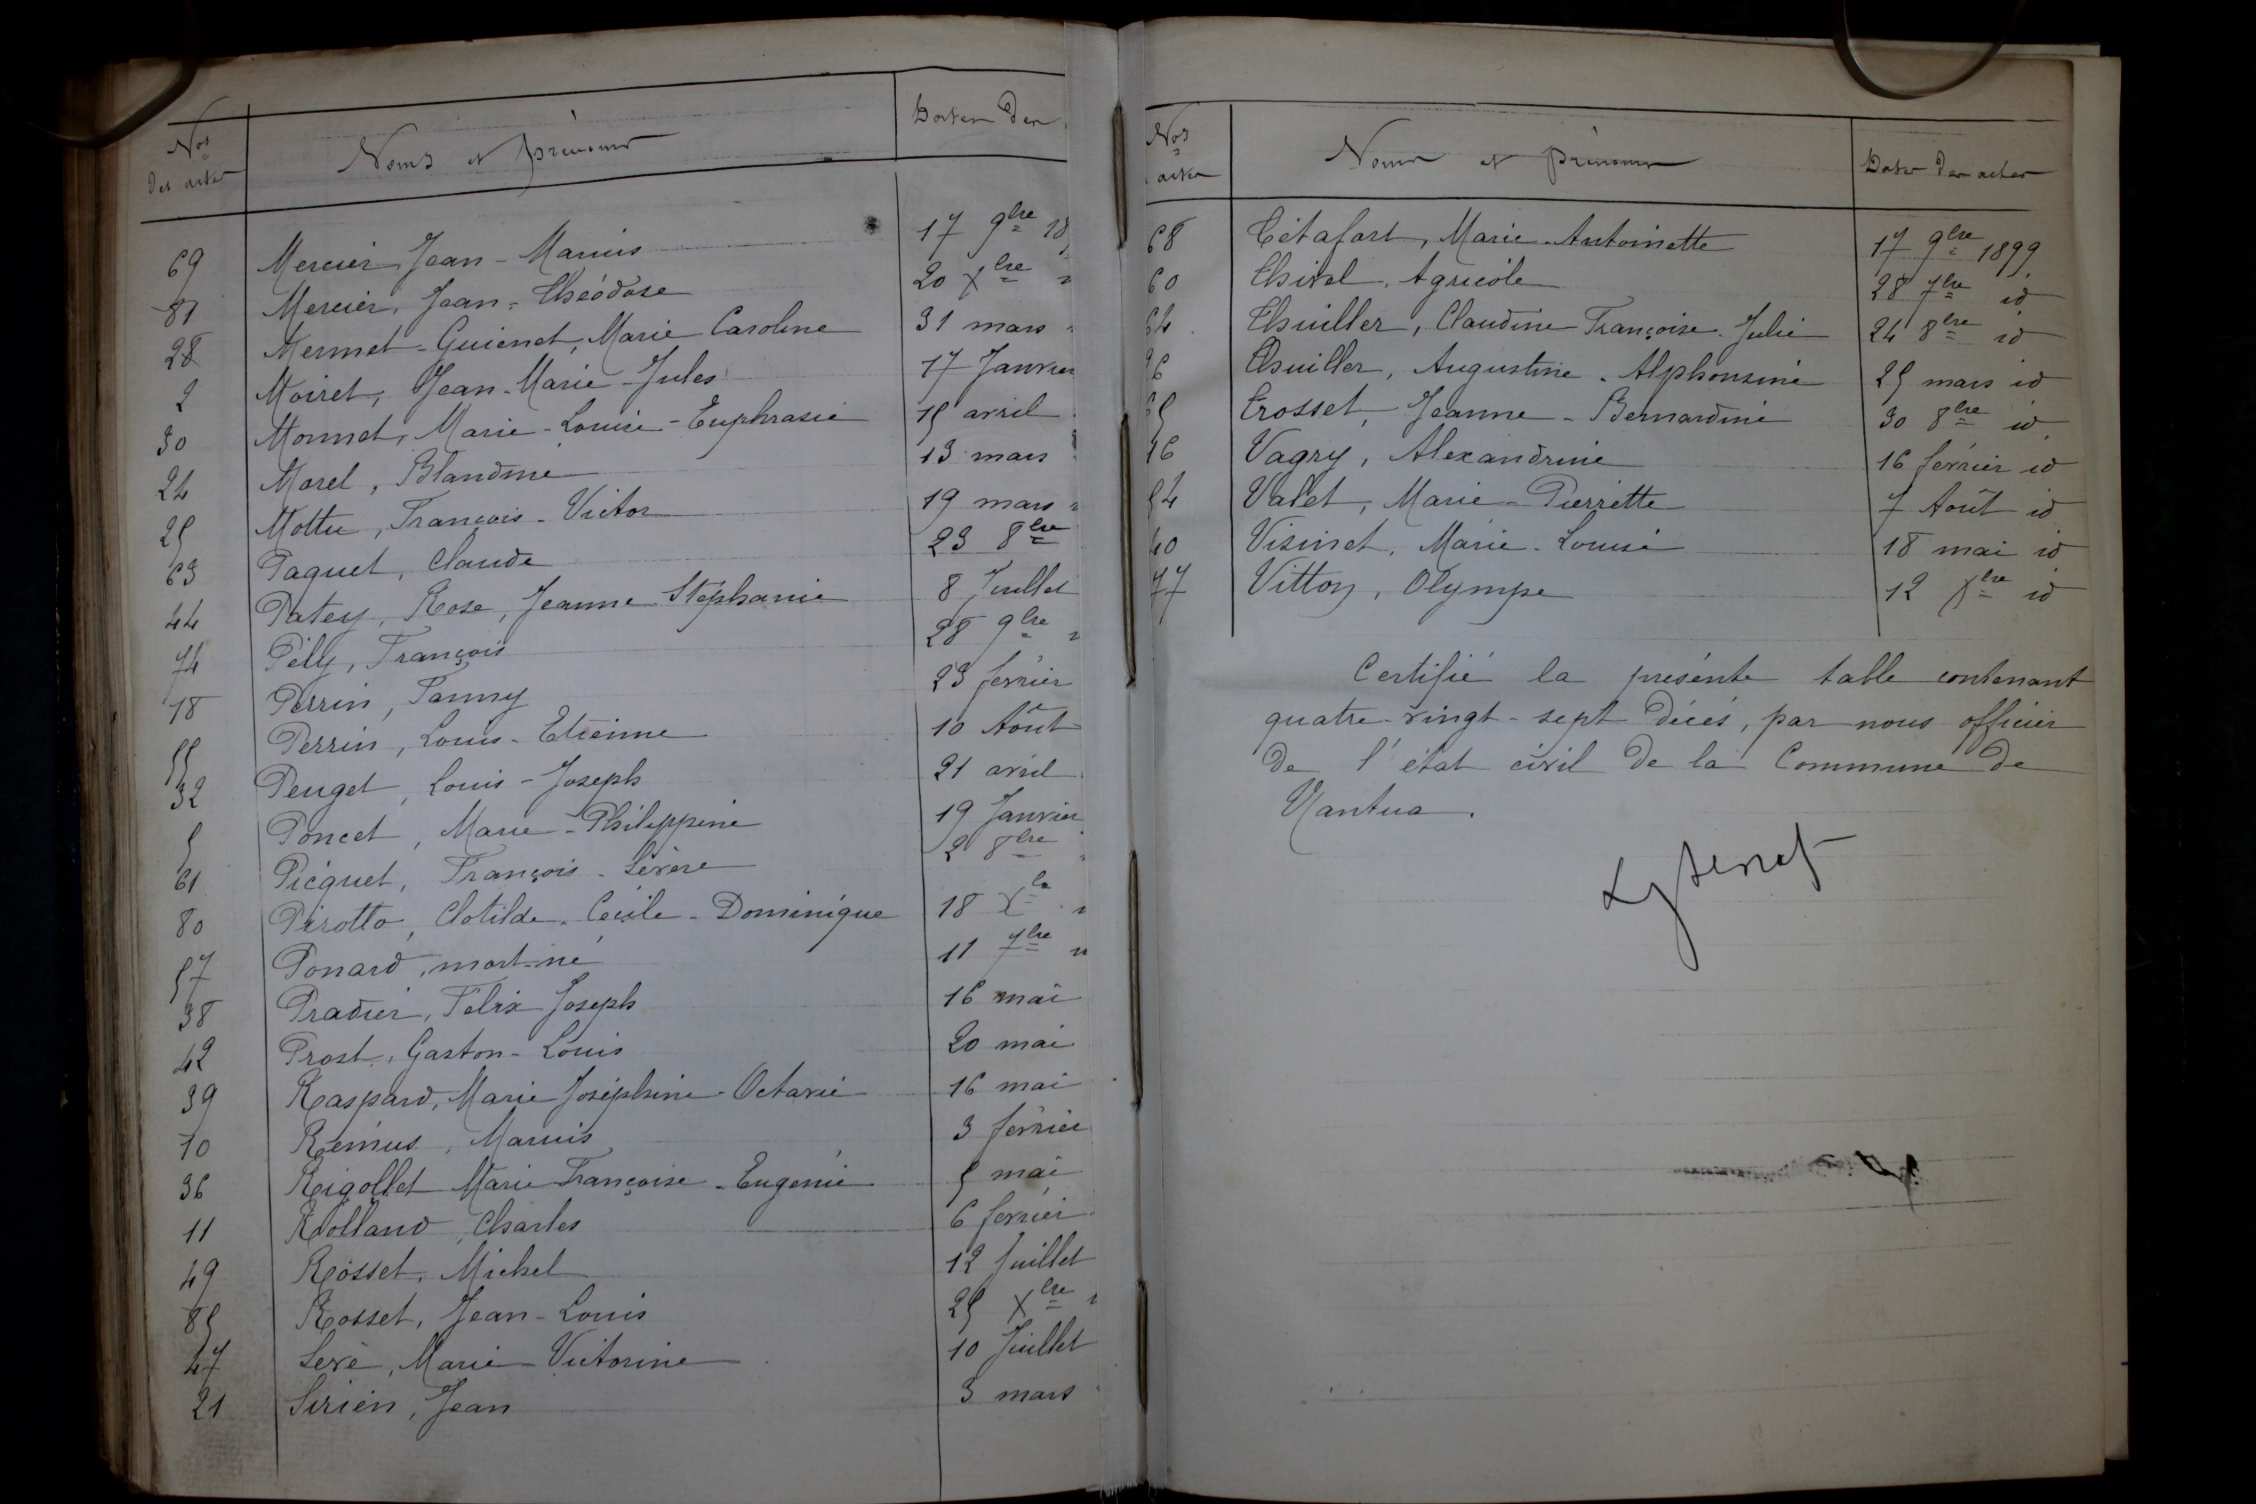 Nos des actes Noms et prénoms Dates des
69 Mercier, Jean-Marius 17 9bre 18
81 Mercier, Jean-Théodore 20 Xbre "
28 Mermet-Guienet, Marie Caroline 31 mars "
2 Moiret, Jean-Marie-Jules 17 Janvier
30 Monnet, Marie-Louise-Euphrasie 15 avril
24 Morel, Blandine 13 mars
25 Mottu, François-Victor 19 mars "
63 Paquet, Claude 23 8bre
44 Patey, Rose, Jeanne Stéphanie 8 Juillet
74 Pély, François 28 9bre "
18 Perrin, Fanny 23 février
55 Perrin, Louis-Etienne 10 Août
32 Peuget, Louis-Joseph 21 avril
5 Poncet, Marie-Philippine 19 Janvier
61 Picquet, François-Sévère 2 8bre "
80 Pirotta, Clotilde-Cécile-Dominique 18 Xbre "
57 Ponard, mort-né 11 7bre "
38 Pradier, Félix Joseph 16 mai
42 Prost, Gaston-Louis 20 mai
39 Raspard, Marie Joséphine-Octavie 16 mai
10 Rémus, Marius 3 février
36 Rigollet Marie Françoise-Eugénie 5 mai
11 Rolland, Charles 6 février
49 Rosset, Michel 12 Juillet
85 Rosset, Jean-Louis 25 Xbre "
47 Seve, Marie-Victorine 10 Juillet
21 Sirien, Jean 3 mars
Nos actes Noms et prénoms Dates des actes
68 Tétafort, Marie-Antoinette 17 9bre 1899
60 Thivel, Agricole 28 7bre id
64 Thuiller, Claudine Françoise-Julie 24 8bre id
26 Thuiller, Augustine-Alphonsine 25 mars id
65 Trosset, Jeanne-Bernardine 30 8bre id
16 Vagry, Alexandrine 16 février id
54 Valet, Marie-Pierrette 7 Août id
40 Visinet, Marie-Louise 18 mai id
77 Vitton, Olympe 12 Xbre id
Certifié la présente table contenant
quatre-vingt-sept décés, par nous officier
de l'état civil de la Commune de
Nantua.